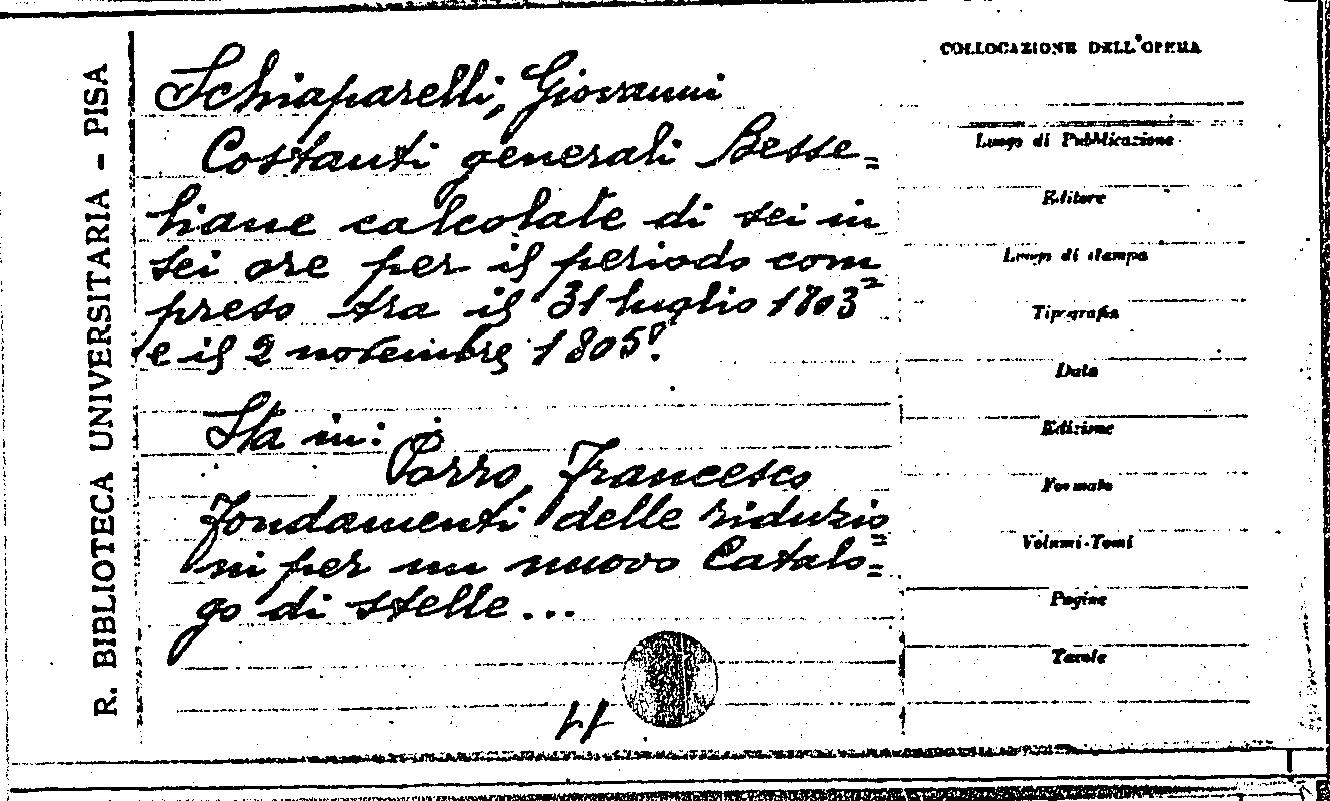 R. BIBLIOTECA UNIVERSITARIA - PISA
Schiaparelli, Giovanni
Costanti generali Besse=
liane calcolate di sei in
sei ore per il periodo com=
preso tra il 31 luglio 1803
e il 2 novembre 1805.
Sta in:
Porro, Francesco
Fondamenti delle riduzio=
ni per un nuovo Catalo=
go di stelle...
COLLOCAZIONE DELL'OPERA
Luogo di Pubblicazione
Editore
Luogo di stampa
Tipografia
Data
Edizione
Formato
Volumi-Tomi
Pagine
Tavole